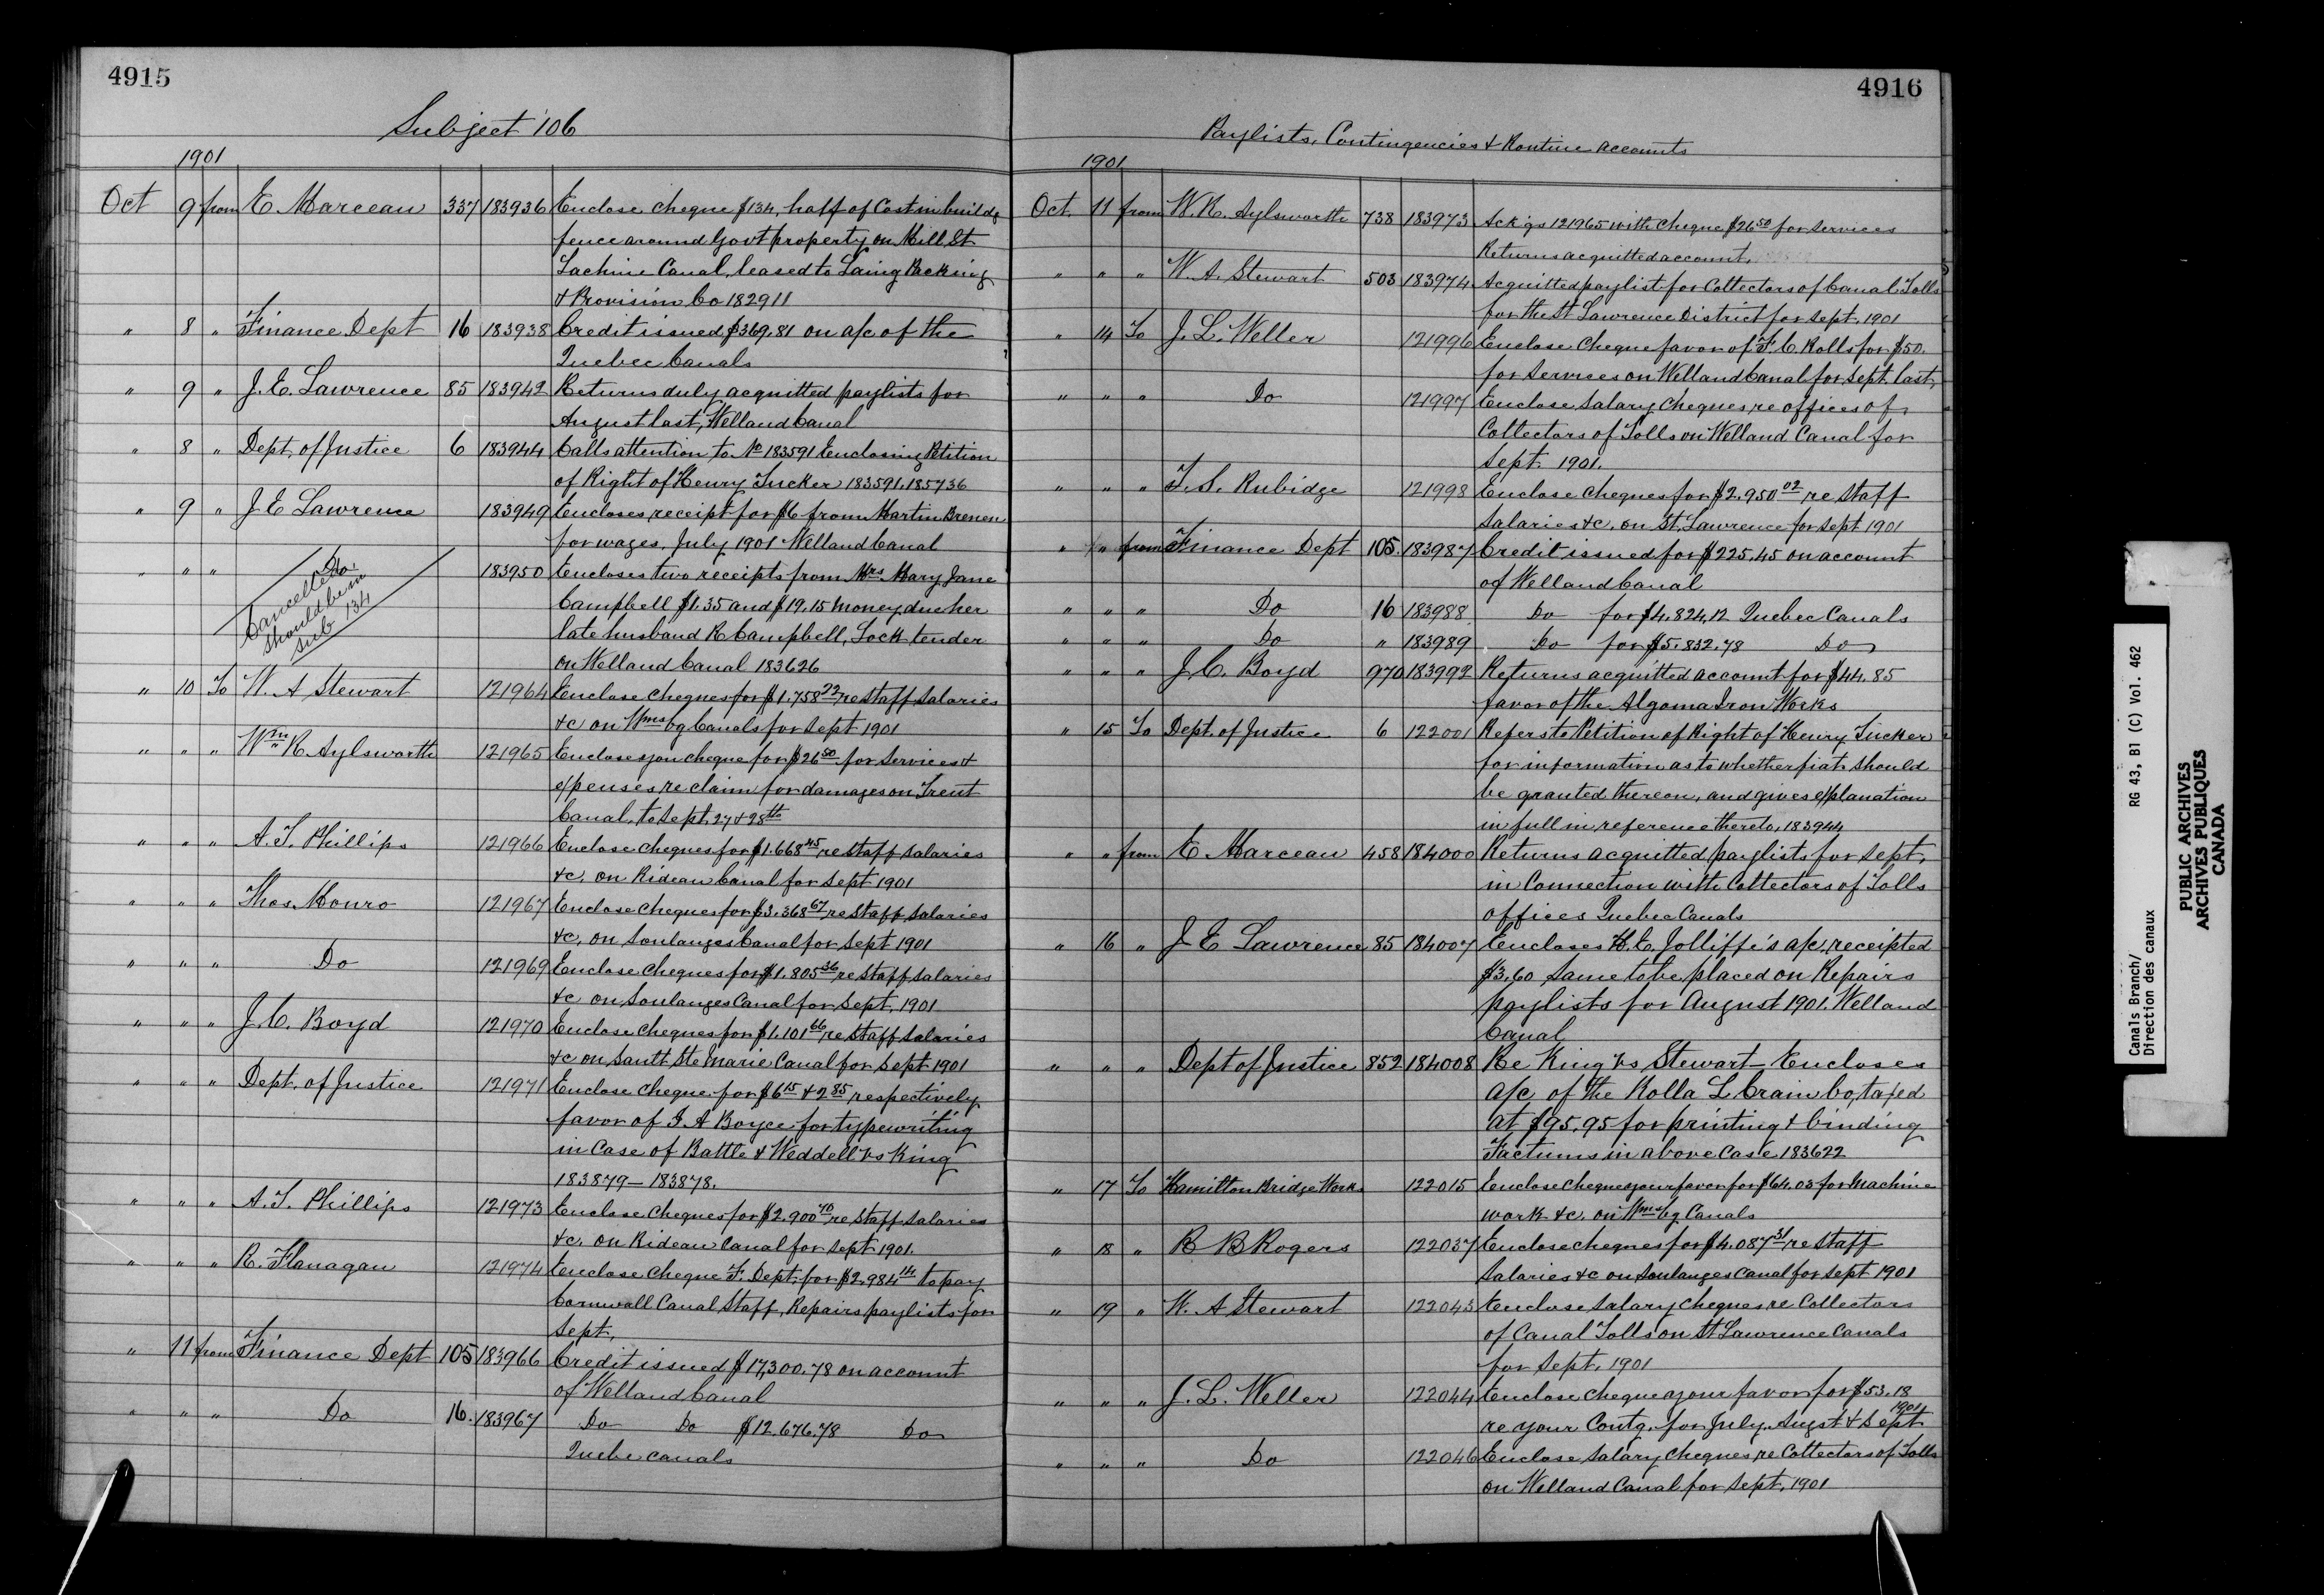 4915
Subject 106
1901
Oct 9 from E. Marceau 337 183936 Enclose cheque $134, half of Cost in buildg
fence around Govt property on Mill St
Lachine Canal, leased to Laing Packing
& Provision Co 182911
" 8 " Finance Dept 16 183938 Credit issued $369.81 on a/c of the
Quebec Canals
" 9 " J. E. Lawrence 85 183942 Returns duly acquitted paylists for
August last, Welland Canal
" 8 " Dept. of Justice 6 183944 Calls attention to No 183591 Enclosing Petition
of Right of Henry Tucker 183591. 185736
" 9 " J E Lawrence 183949 Encloses receipt for $6 from Martin Brenen
for wages, July 1901 Welland Canal
" " " Do. 183950 Encloses two receipts from Mrs Mary Jane
Cancelled
should be in
sub 134
Campbell $1.35 and $19.15 money due her
late husband R Campbell, Lock tender
on Welland Canal 183626
" 10 To W. A Stewart 121964 Enclose cheques for $1.758 72 re staff salaries
&c on Wmsbg Canals for Sept 1901
" " " Wm R. Aylsworth 121965 Enclose you cheque for $26 50 for services &
expenses re claim for damages on Trent
Canal, to Sept. 27 & 28th
" " " A. T. Phillips 121966 Enclose cheques for $1.668 45 re staff salaries
&c. on Rideau Canal for Sept 1901
" " " Thos. Monro 121967 Enclose cheques for $3.368 67 re staff salaries
&c. on Soulanges Canal for Sept 1901
" " " Do 121969 Enclose cheques for $1.805 36 re staff salaries
&c on Soulanges Canal for Sept. 1901
" " " J. C. Boyd 121970 Enclose cheques for $1.101 66 re staff salaries
&c on Sault Ste Marie Canal for Sept 1901
" " " Dept. of Justice 121971 Enclose cheque for $6 15 & 2 85 respectively
favor of I A Boyce for typewriting
in Case of Battle & Weddell vs King
183879 — 183878.
" " " A. T. Phillips 121973 Enclose cheques for $2.900 70 re staff salaries
&c. on Rideau Canal for Sept 1901.
" " " R. Flanagan 121974 Enclose cheque F. Dept. for $2.984 14 to pay
Cornwall Canal Staff, Repairs paylists for
Sept,
" 11 from Finance Dept 105 183966 Credit issued $17,300.78 on account
of Welland Canal
" " " Do 16. 183967 Do Do $12.676.78 Do
Quebec canals
4916
Paylists, Contingencies & Routine accounts
1901
Oct. 11 from W. R. Aylsworth 738 183973 Ackgs 121965 with cheque $26 50 for services
Returns acquitted account.
" " " W. A. Stewart 503 183974 Acquitted paylist for Collectors of Canal Tolls
for the St Lawrence District for Sept. 1901
" 14 To J. L. Weller 121996 Enclose cheque favor of F. C. Rolls for $50.
for services on Welland Canal for Sept. last
" " " Do 121997 Enclose salary cheques, re offices of
Collectors of Tolls on Welland Canal for
Sept 1901.
" " " T. S. Rubidge 121998 Enclose cheques for $2.950 02 re staff
salaries &c. on St. Lawrence for Sept 1901
" " from Finance Dept 105. 183987 Credit issued for $225.45 on account
of Welland Canal
" " " Do 16 183988 Do for $4.824.12 Quebec Canals
" " " Do " 183989 Do for $5.832.78 Do
" " " J. C. Boyd 970 183992 Returns acquitted account for $44.85
favor of the Algoma Iron Works
" 15 To Dept. of Justice 6 122001 Refers to Petition of Right of Henry Tucker
for information as to whether fiat should
be granted thereon, and gives explanation
in full in reference thereto, 183944
" " from E. Marceau 458 184000 Returns acquitted paylists for Sept.
in Connection with Collectors of Tolls
offices Quebec Canals
" 16 " J E Lawrence 85 184007 Encloses H. E. Jolliffe's a/c, receipted
$3.60 same to be placed on Repairs
paylists for August 1901. Welland
Canal
" " " Dept of Justice 852 184008 Re King vs Stewart - Encloses
a/c of the Rolla L Crain Co, taxed
at $95.95 for printing & binding
Factums in above case 183622
" 17 To Hamilton Bridge Works 122015 Enclose cheque your favor for $64.03 for Machine
work &c. on Wmsbg Canals
" 18 " R B Rogers 122037 Enclose cheques for $4.087 31 re staff
salaries &c on Soulanges Canal for Sept 1901
" 19 " W. A Stewart 122043 Enclose salary cheques re Collectors
of Canal Tolls on St Lawrence Canals
for Sept. 1901
" " " J. L. Weller 122044 Enclose cheque your favor for $53.18
re your Contg. for July, Augst & Sept 1901
" " " Do 122046 Enclose salary cheques, re Collectors of Tolls
on Welland Canal for Sept. 1901
Canals Branch/ RG 43, B1 (C) Vol. 462
Direction des canaux
PUBLIC ARCHIVES
ARCHIVES PUBLIQUES
CANADA